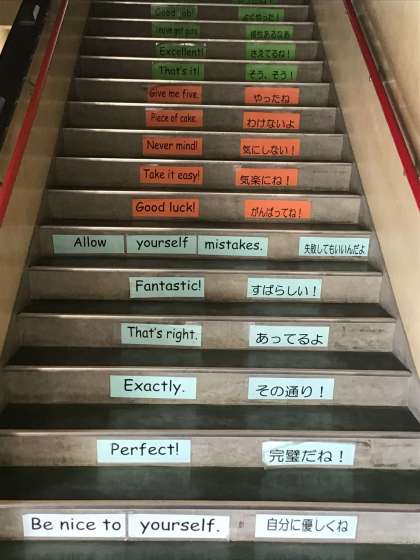 Good job! よくやった!
I have got guts. 根性あるなあ
Excellent! さえてるね!
That's it! そう、そう!
Give me five. やったね
Piece of cake. わけないよ
Never mind! 気にしない!
Take it easy! 気楽にね!
Good luck! がんばってね!
Allow yourself mistakes. 失敗してもいいんだよ
Fantastic! すばらしい!
That's right. あってるよ
Exactly. その通り!
Perfect! 完璧だね!
Be nice to yourself. 自分に優しくね